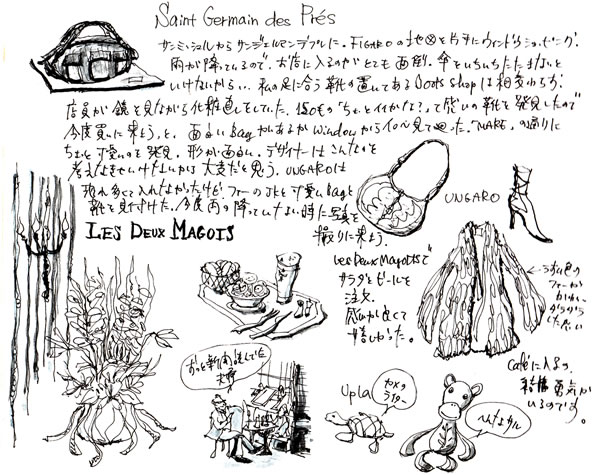 Saint Germain des Prés
サンミッシェルから サンジェルマンデプレに。FIGAROの地図を片手にウィンドウショッピング。
雨が降っているので、お店に入るのがとても面倒。傘をいちいちたたまないと
いけないから。私の足に合う靴の置いてある Boots Shopは相変わらず
店員が鏡を見ながら化粧直しをしていた。
今度買いに来よう、と。面白いbagがあるかwindowから
ちょっと可愛いのを発見。形が面白い。デザイナーはこんなのを
考えなきゃいけないから大変だと思う。UNGAROは
恐れ多くて入れなかったけどファーのJKと可愛いbagと
靴を見付けた。今度雨の降っていない時に写真を
撮りに来よう。
UNGARO
LES DEUX MAGOTS
Les Deux Magotsで
サラダとビールを
注文。
嬉しかった。
うすい色の
ファーが
かわいい
Caféに入るのは
結構勇気が
いるのです。
ずっと新聞読んでた
Upla
カメの
ライター
へんなサル